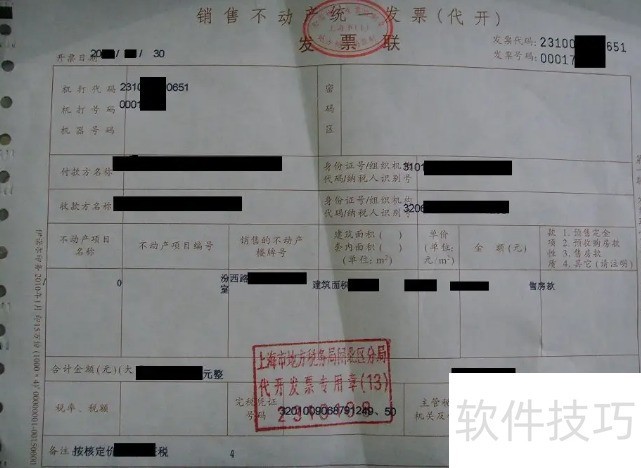 销售不动产统一发票(代开)
发票联
发票代码:23100 651
发票号码:00017
开票日期 20 / / 30
机打代码 2310 0651
机打号码 0001
机器号码
密码区
付款方名称
身份证号/组织机构代码/纳税人识别号 3101
收款方名称
身份证号/组织机构代码/纳税人识别号 3206
不动产项目名称
不动产项目编号
销售的不动产楼牌号
建筑面积( )
套内面积( )
(单位:m²)
单价
(单位:元/m²)
金额(元)
款项性质
1.预售定金
2.预收购房款
3.售房款
4.其它(请注明)
0
汾西路
室
建筑面积
售房款
合计金额(元)(大
元整
上海市地方税务局闸北区分局
代开发票专用章(13)
税率、税额
完税凭证号码
主管税
机关及
备注 按核定价 税
4
软件技巧